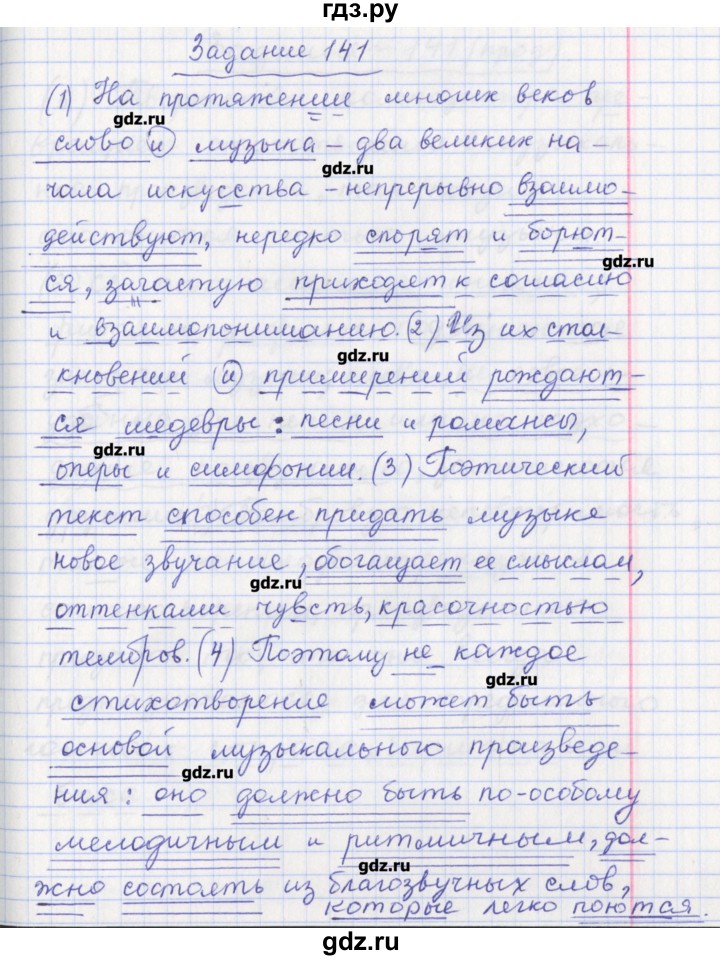 гдз.ру
Задание 141
(1) На протяжении многих веков
gdz.ru
слово и музыка – два великих на-
gdz.ru
чала искусства – непрерывно взаимо-
действуют, нередко спорят и борют-
gdz.ru
ся, зачастую приходят к согласию
и взаимопониманию. (2) Из их стол-
gdz.ru
кновений и примирений рождают-
ся шедевры: песни и романсы,
gdz.ru
оперы и симфонии. (3) Поэтический
текст способен придать музыке
новое звучание, обогащает ее смыслом,
gdz.ru
оттенками чувств, красочностью
тембров. (4) Поэтому не каждое
gdz.ru
стихотворение может быть
основой музыкального произведе-
gdz.ru
ния: оно должно быть по-особому
мелодичным и ритмичным, дол-
gdz.ru
жно состоять из благозвучных слов,
которые легко поются.
gdz.ru